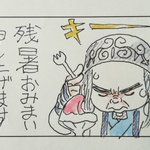 キー
残暑おみまい
申し上げます